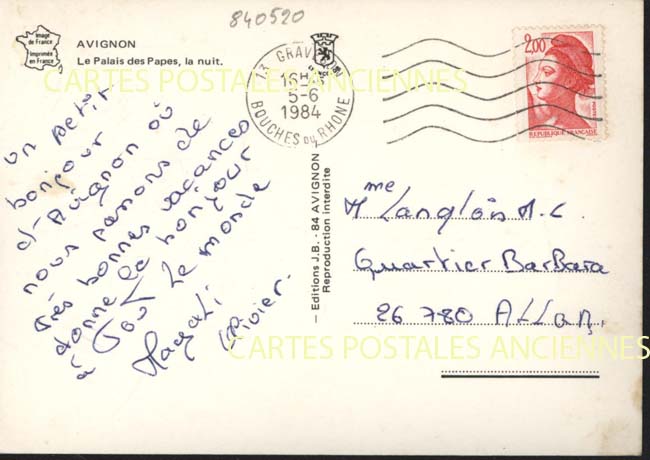 840520
Image
de France
Imprimée
en France
AVIGNON
Le Palais des Papes, la nuit.
CARTES POSTALES ANCIENNES
13 GRAV
16H
5-6
1984
BOUCHES DU RHONE
2,00
REPUBLIQUE FRANÇAISE
un petit
bonjour
d'Avignon où
nous passons de
très bonnes vacances
donne le bonjour
à tout le monde
Magali
— Editions J.B. - 84 AVIGNON
Reproduction interdite
Mme Langlois M.C.
Quartier Barbara
26 780 Allan.
CARTES POSTALES ANCIENNES